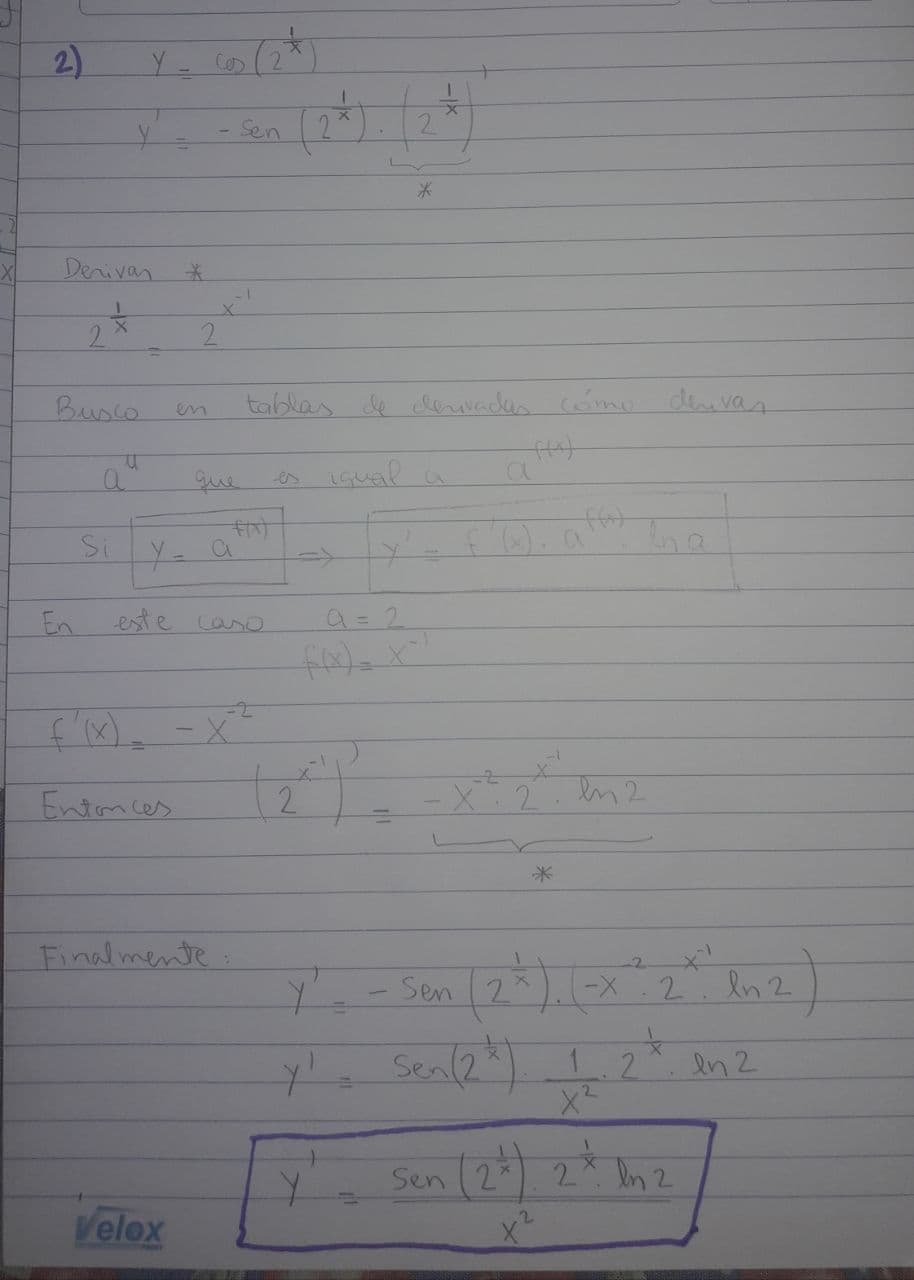 2) y = cos(2^(1/x))
y' = - sen (2^(1/x)) . (2^(1/x))'
*
Derivar *
2^(1/x) = 2^(x^-1)
Busco en tablas de derivadas cómo derivar
a^u que es igual a a^f(x)
Si y = a^f(x) => y' = f'(x) . a^f(x) . ln a
En este caso a = 2
f(x) = x^-1
f'(x) = - x^-2
Entonces (2^(x^-1))' = - x^-2 . 2^(x^-1) . ln 2
*
Finalmente:
y' = - sen (2^(1/x)) . (-x^-2 . 2^(x^-1) . ln 2)
y' = sen(2^(1/x)) . 1/x^2 . 2^(1/x) . ln 2
y' = sen (2^(1/x)) . 2^(1/x) . ln 2 / x^2
Velox